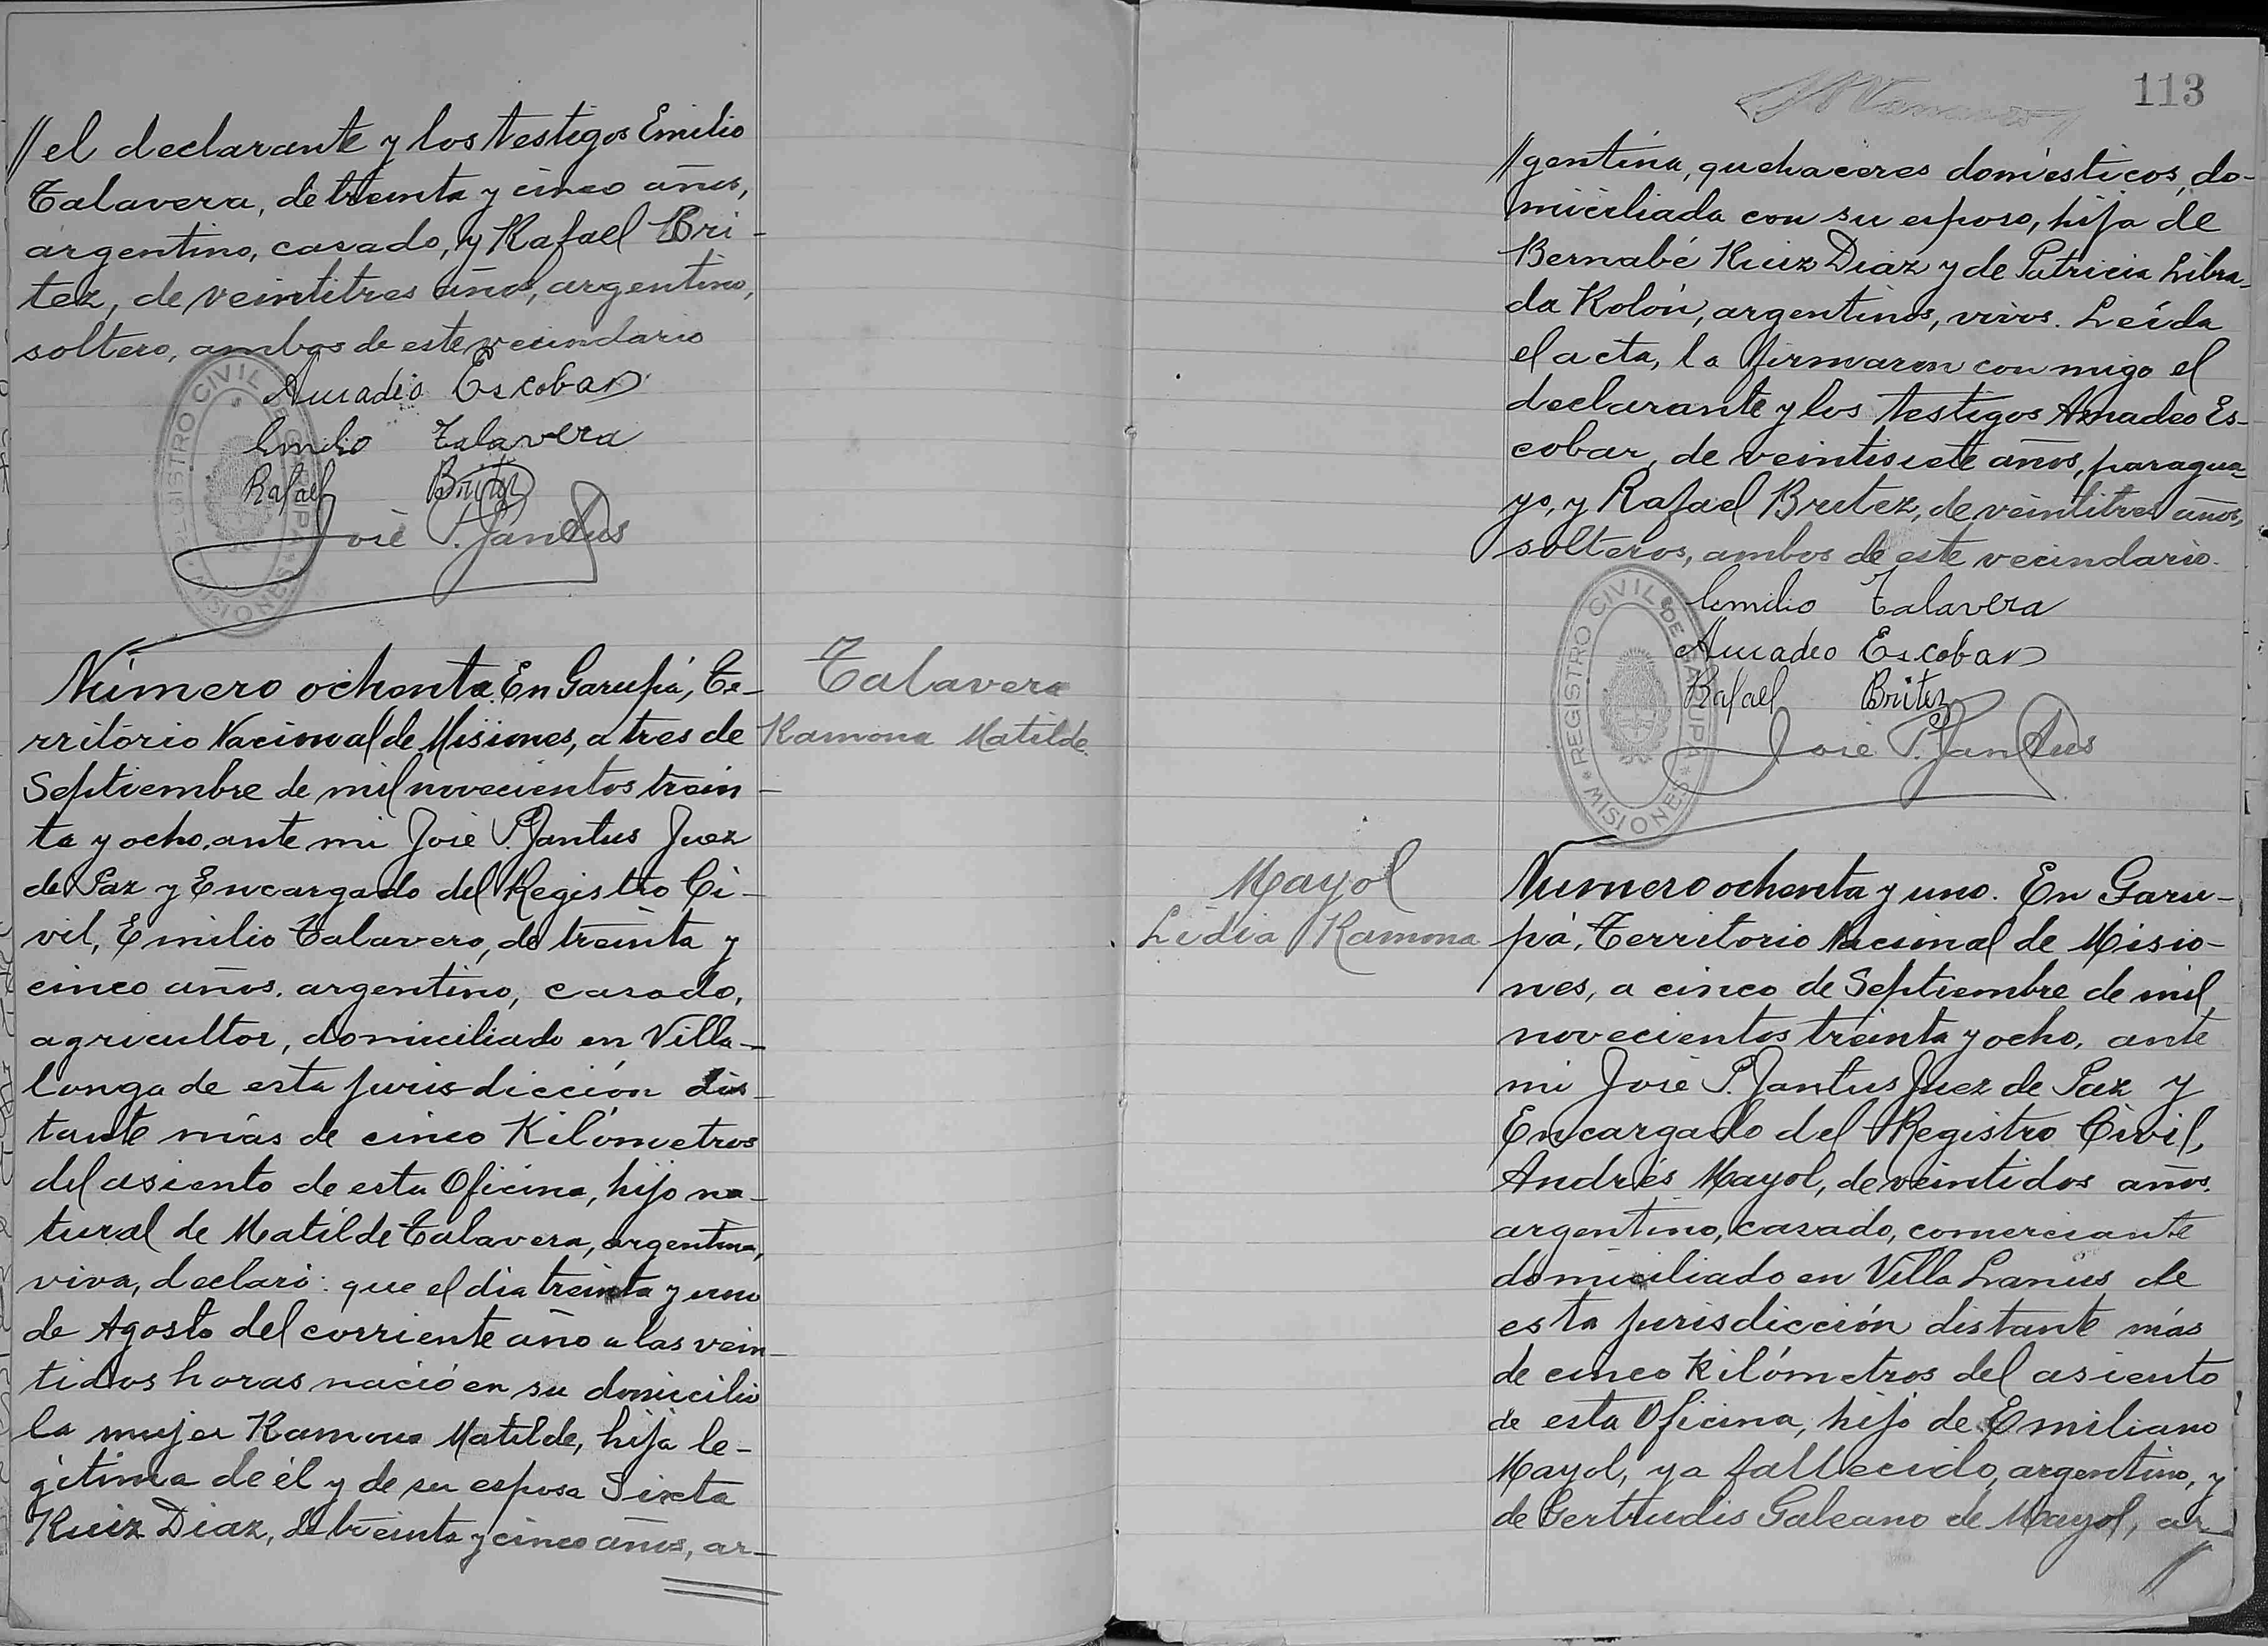 // el declarante y los testigos Emilio
Talavera, de treinta y cinco años,
argentino, casado, y Rafael Bri-
tez, de veintitres años, argentino,
soltero, ambos de este vecindario
Amadeo Escobar
Emilio Talavera
Rafael Britez
José P. Jantus
REGISTRO CIVIL DE GARUPA
* MISIONES *
Número ochenta. En Garupá, Te-
rritorio Nacional de Misiones, a tres de
Septiembre de mil novecientos trein-
ta y ocho, ante mi José P. Jantus Juez
de Paz y Encargado del Registro Ci-
vil, Emilio Talavera, de treinta y
cinco años, argentino, casado,
agricultor, domiciliado en Villa-
longa de esta jurisdicción dis-
tante más de cinco Kilómetros
del asiento de esta Oficina, hijo na-
tural de Matilde Talavera, argentina,
viva, declaró: que el dia treinta y uno
de Agosto del corriente año a las vein-
tidos horas nació en su domicilio
la mujer Ramona Matilde, hija le-
gitima de él y de su esposa Sixta
Ruiz Diaz, de treinta y cinco años, ar-
Talavera
Ramona Matilde
113
// gentina, quehaceres domésticos, do-
miciliada con su esposo, hija de
Bernabé Ruiz Diaz y de Patricia Libra-
da Rolón, argentinos, vivos. Leída
el acta, la firmaron con migo el
declarante y los testigos Amadeo Es-
cobar, de veintisiete años, paragua-
yo, y Rafael Britez, de veintitres años,
solteros, ambos de este vecindario.
Emilio Talavera
Amadeo Escobar
Rafael Britez
José P. Jantus
REGISTRO CIVIL DE GARUPA
* MISIONES *
Mayol
Lidia Ramona
Numero ochenta y uno. En Garu-
pá, Territorio Nacional de Misio-
nes, a cinco de Septiembre de mil
novecientos treinta y ocho, ante
mi José P. Jantus Juez de Paz y
Encargado del Registro Civil,
Andrés Mayol, de veintidos años,
argentino, casado, comerciante
domiciliado en Villa Lanús de
esta jurisdicción distante más
de cinco kilómetros del asiento
de esta Oficina, hijo de Emiliano
Mayol, ya fallecido, argentino, y
de Gertrudis Galeano de Mayol, ar-
//